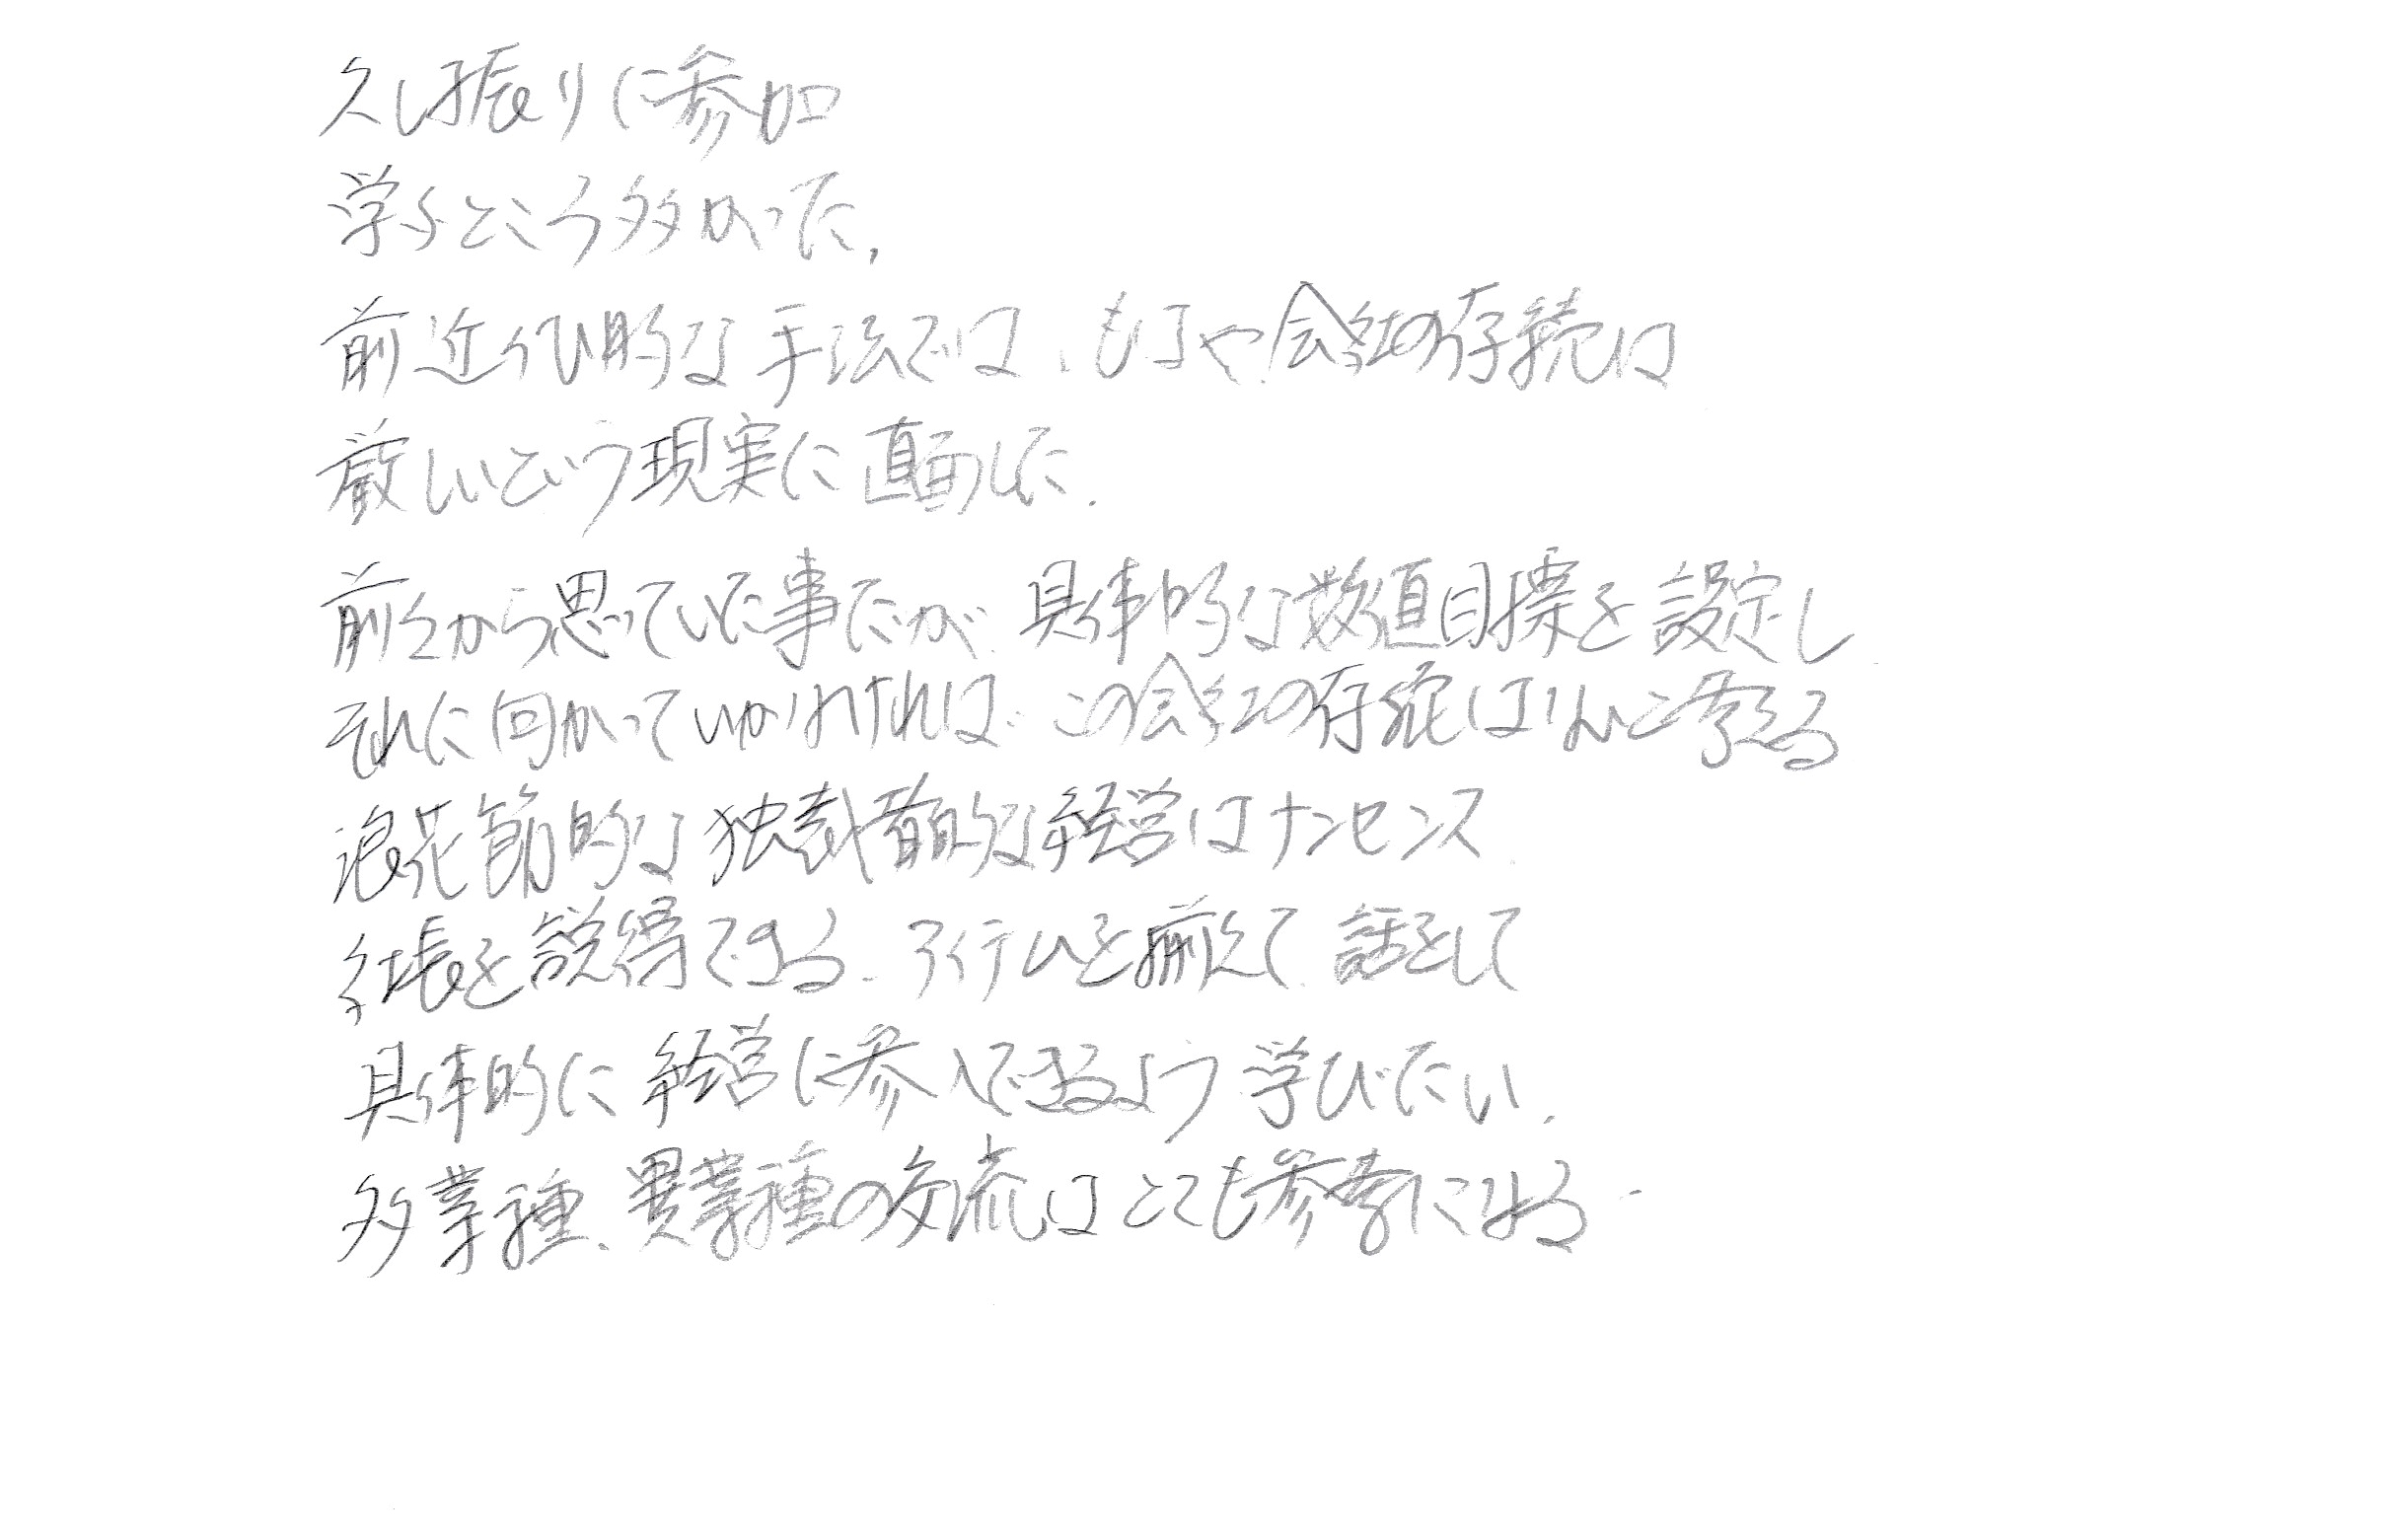 久し振りに参加
学ぶところ多かった。
前近代的な手法では、もはや会社の存続は
厳しいという現実に直面した。
前々から思っていた事だが、具体的な数値目標を設定し
それに向かっていかなければ、この会社の存続はないと考える
浪花節的な独裁者的な経営はナンセンス
社長を説得できる、アイテムを揃えて、話をして
具体的に経営に参入できるよう学びたい。
多業種、異業種の交流はとても参考になる。